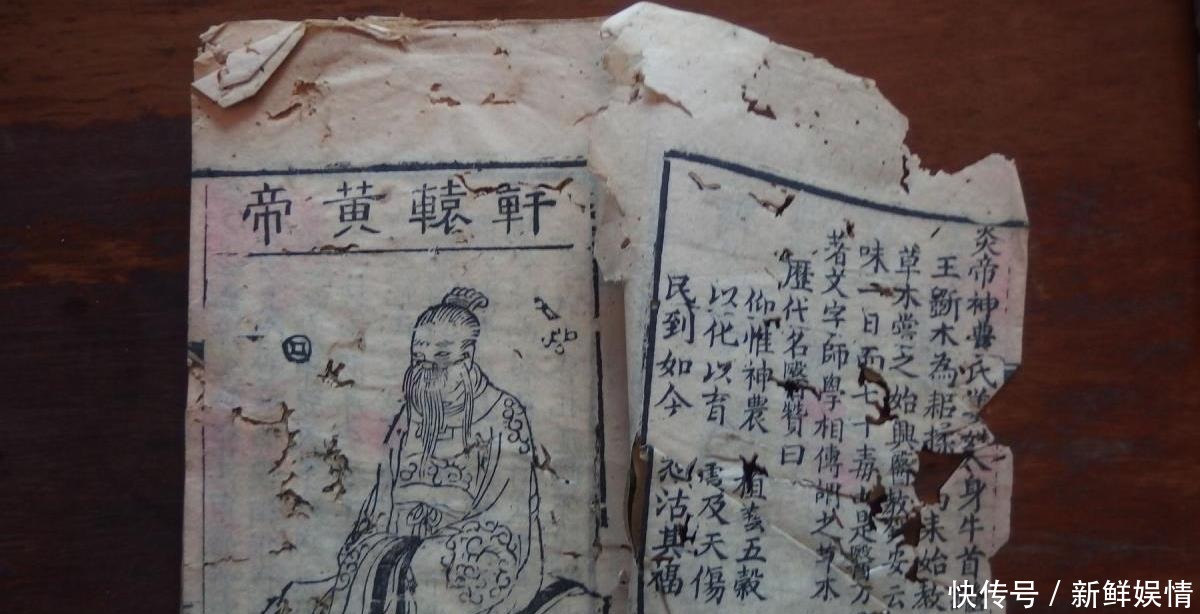 炎帝神農氏姜姓人身牛首
王斲木為耜揉為耒始教
草木嘗之始興醫教云
味一日而七十毒由是醫方
著文字師學相傳謂之草木
歷代名醫贊曰
仰惟神農 植藝五穀
以化以育 及天傷
民到如今 沾其福
軒轅黄帝
快传号 / 新鲜娱情